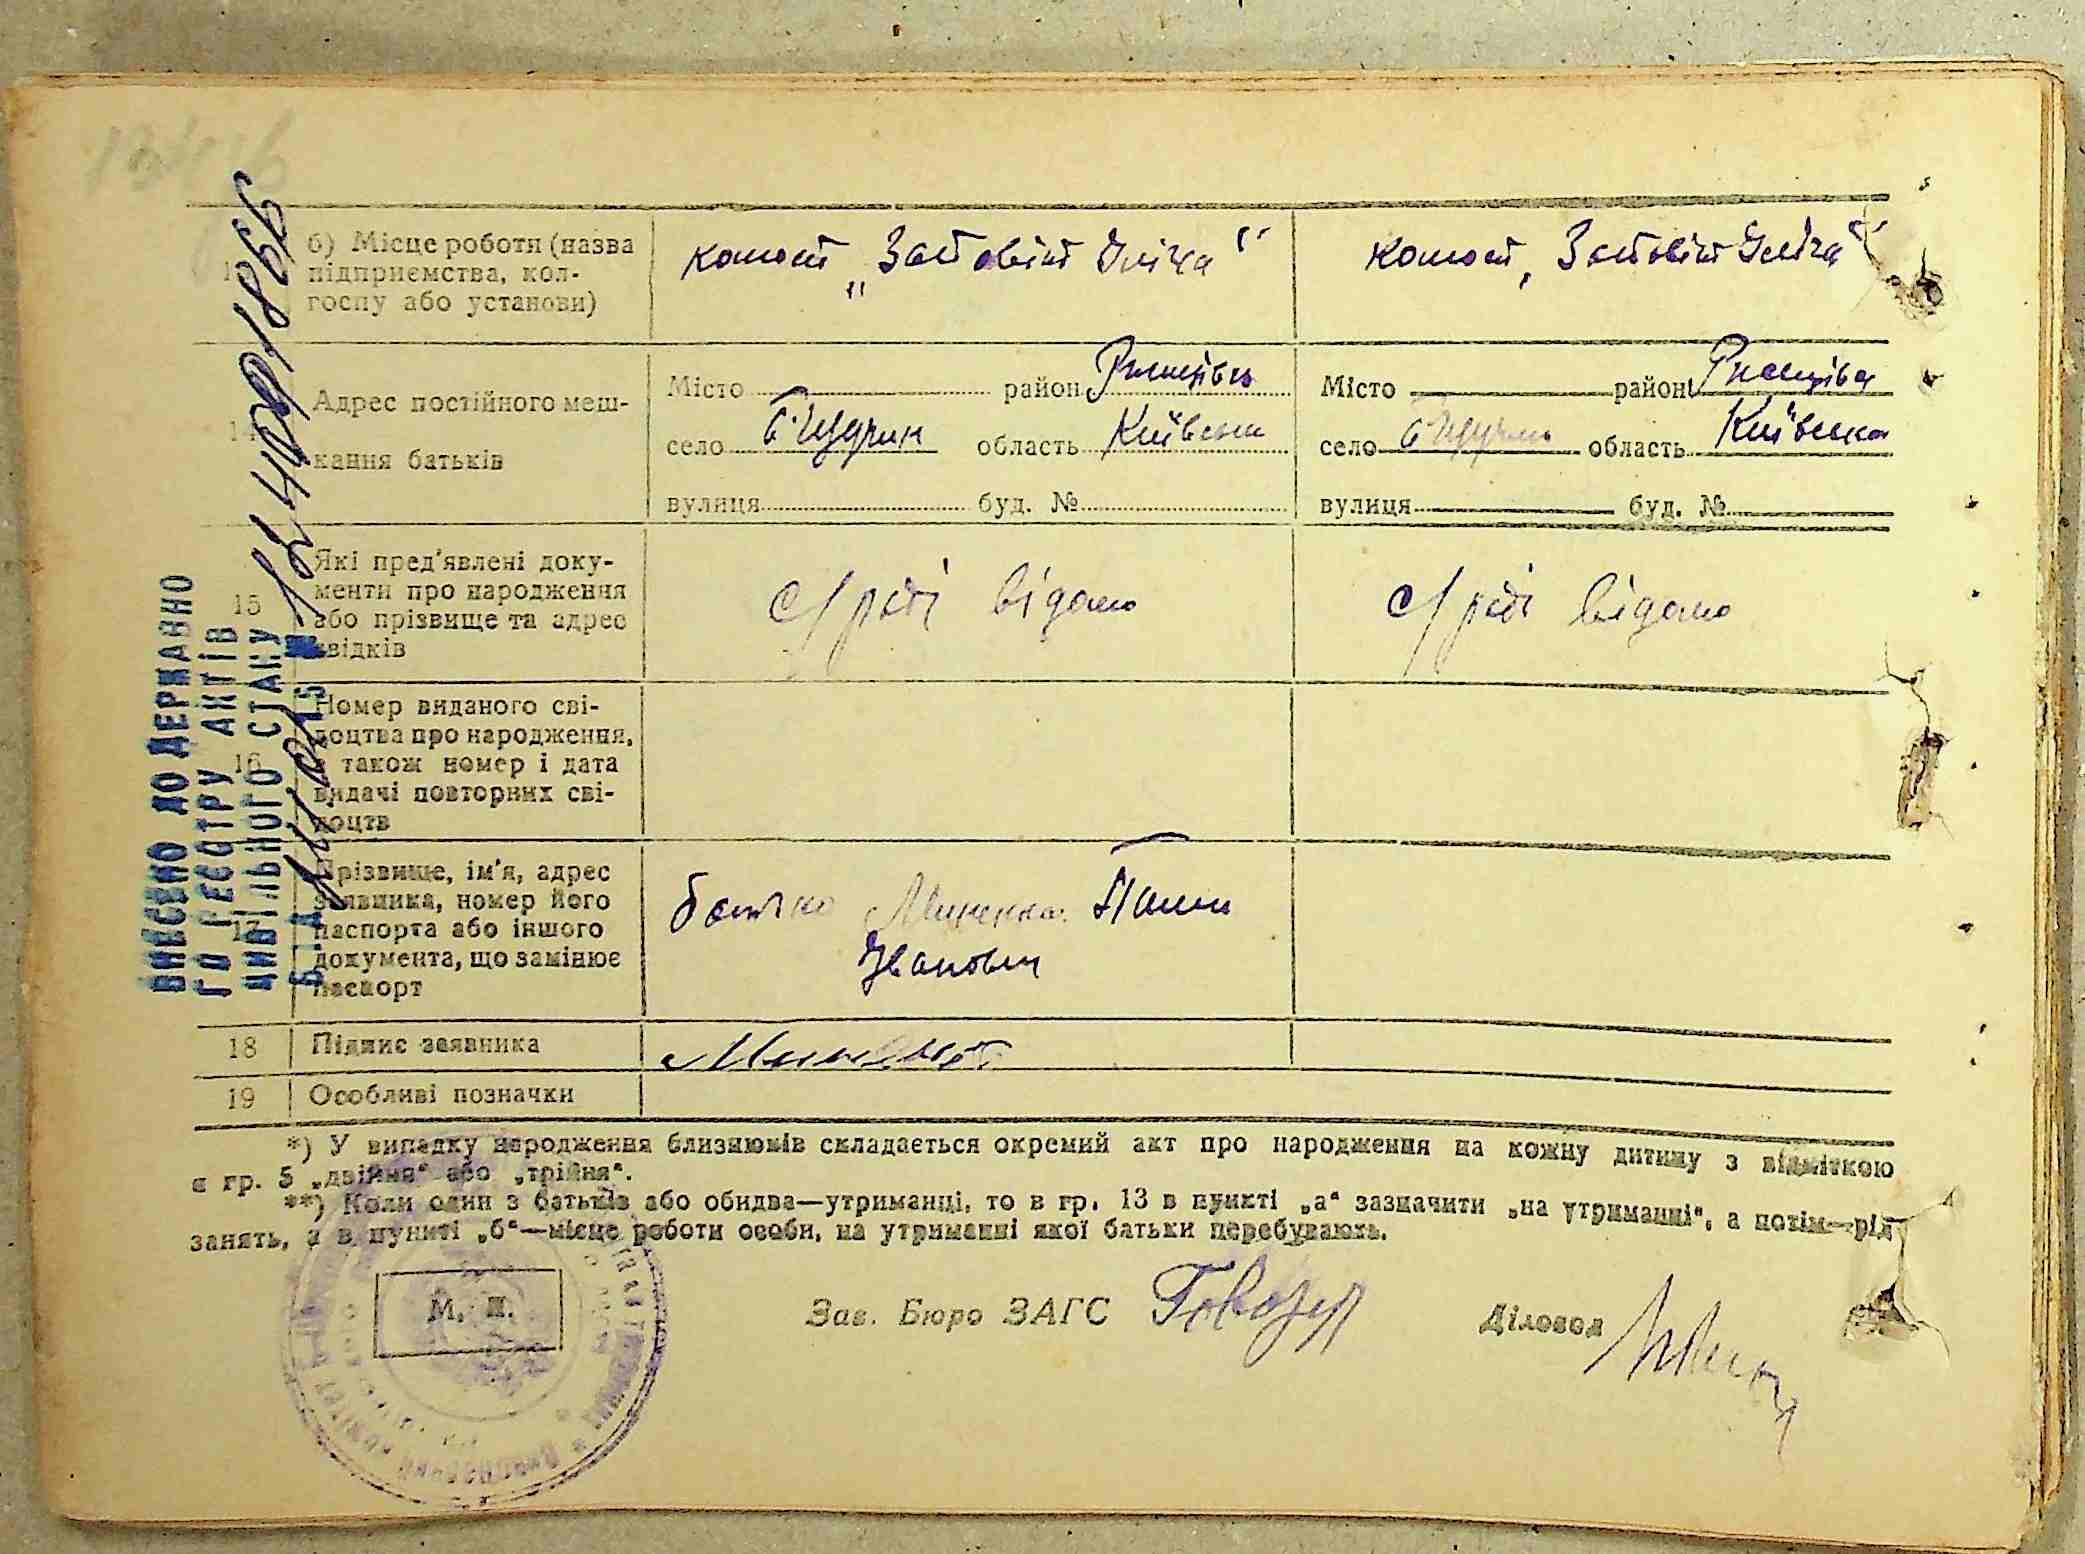 б) Місце роботи (назва
підприємства, кол-
госпу або установи)
колгосп „Заповіт Ілліча“
колгосп „Заповіт Ілліча“
14
Адрес постійного меш-
кання батьків
Місто район Ржищівсь
село Б-Щучин область Київська
вулиця буд. №
Місто район Ржищівсь
село Б-Щучин область Київська
вулиця буд. №
15
Які пред'явлені доку-
менти про народження
або прізвище та адрес
свідків
с/раді відомо
с/раді відомо
16
Номер виданого сві-
доцтва про народження,
а також номер і дата
видачі повторних сві-
доцтв
17
Прізвище, ім'я, адрес
заявника, номер його
паспорта або іншого
документа, що замінює
паспорт
батько Миненко
Іванович
18
Підпис заявника
19
Особливі позначки
*) У випадку народження близнюків складається окремий акт про народження на кожну дитину з відміткою
в гр. 5 „двійня“ або „трійня“.
**) Коли один з батьків або обидва—утриманці, то в гр. 13 в пункті „а“ зазначити „на утриманні“, а потім—рід
занять, а в пункті „б“—місце роботи особи, на утриманні якої батьки перебувають.
М. П.
Зав. Бюро ЗАГС
Діловод
ВНЕСЕНО ДО ДЕРЖАВНО
ГО РЕЄСТРУ АКТІВ
ЦИВІЛЬНОГО СТАНУ